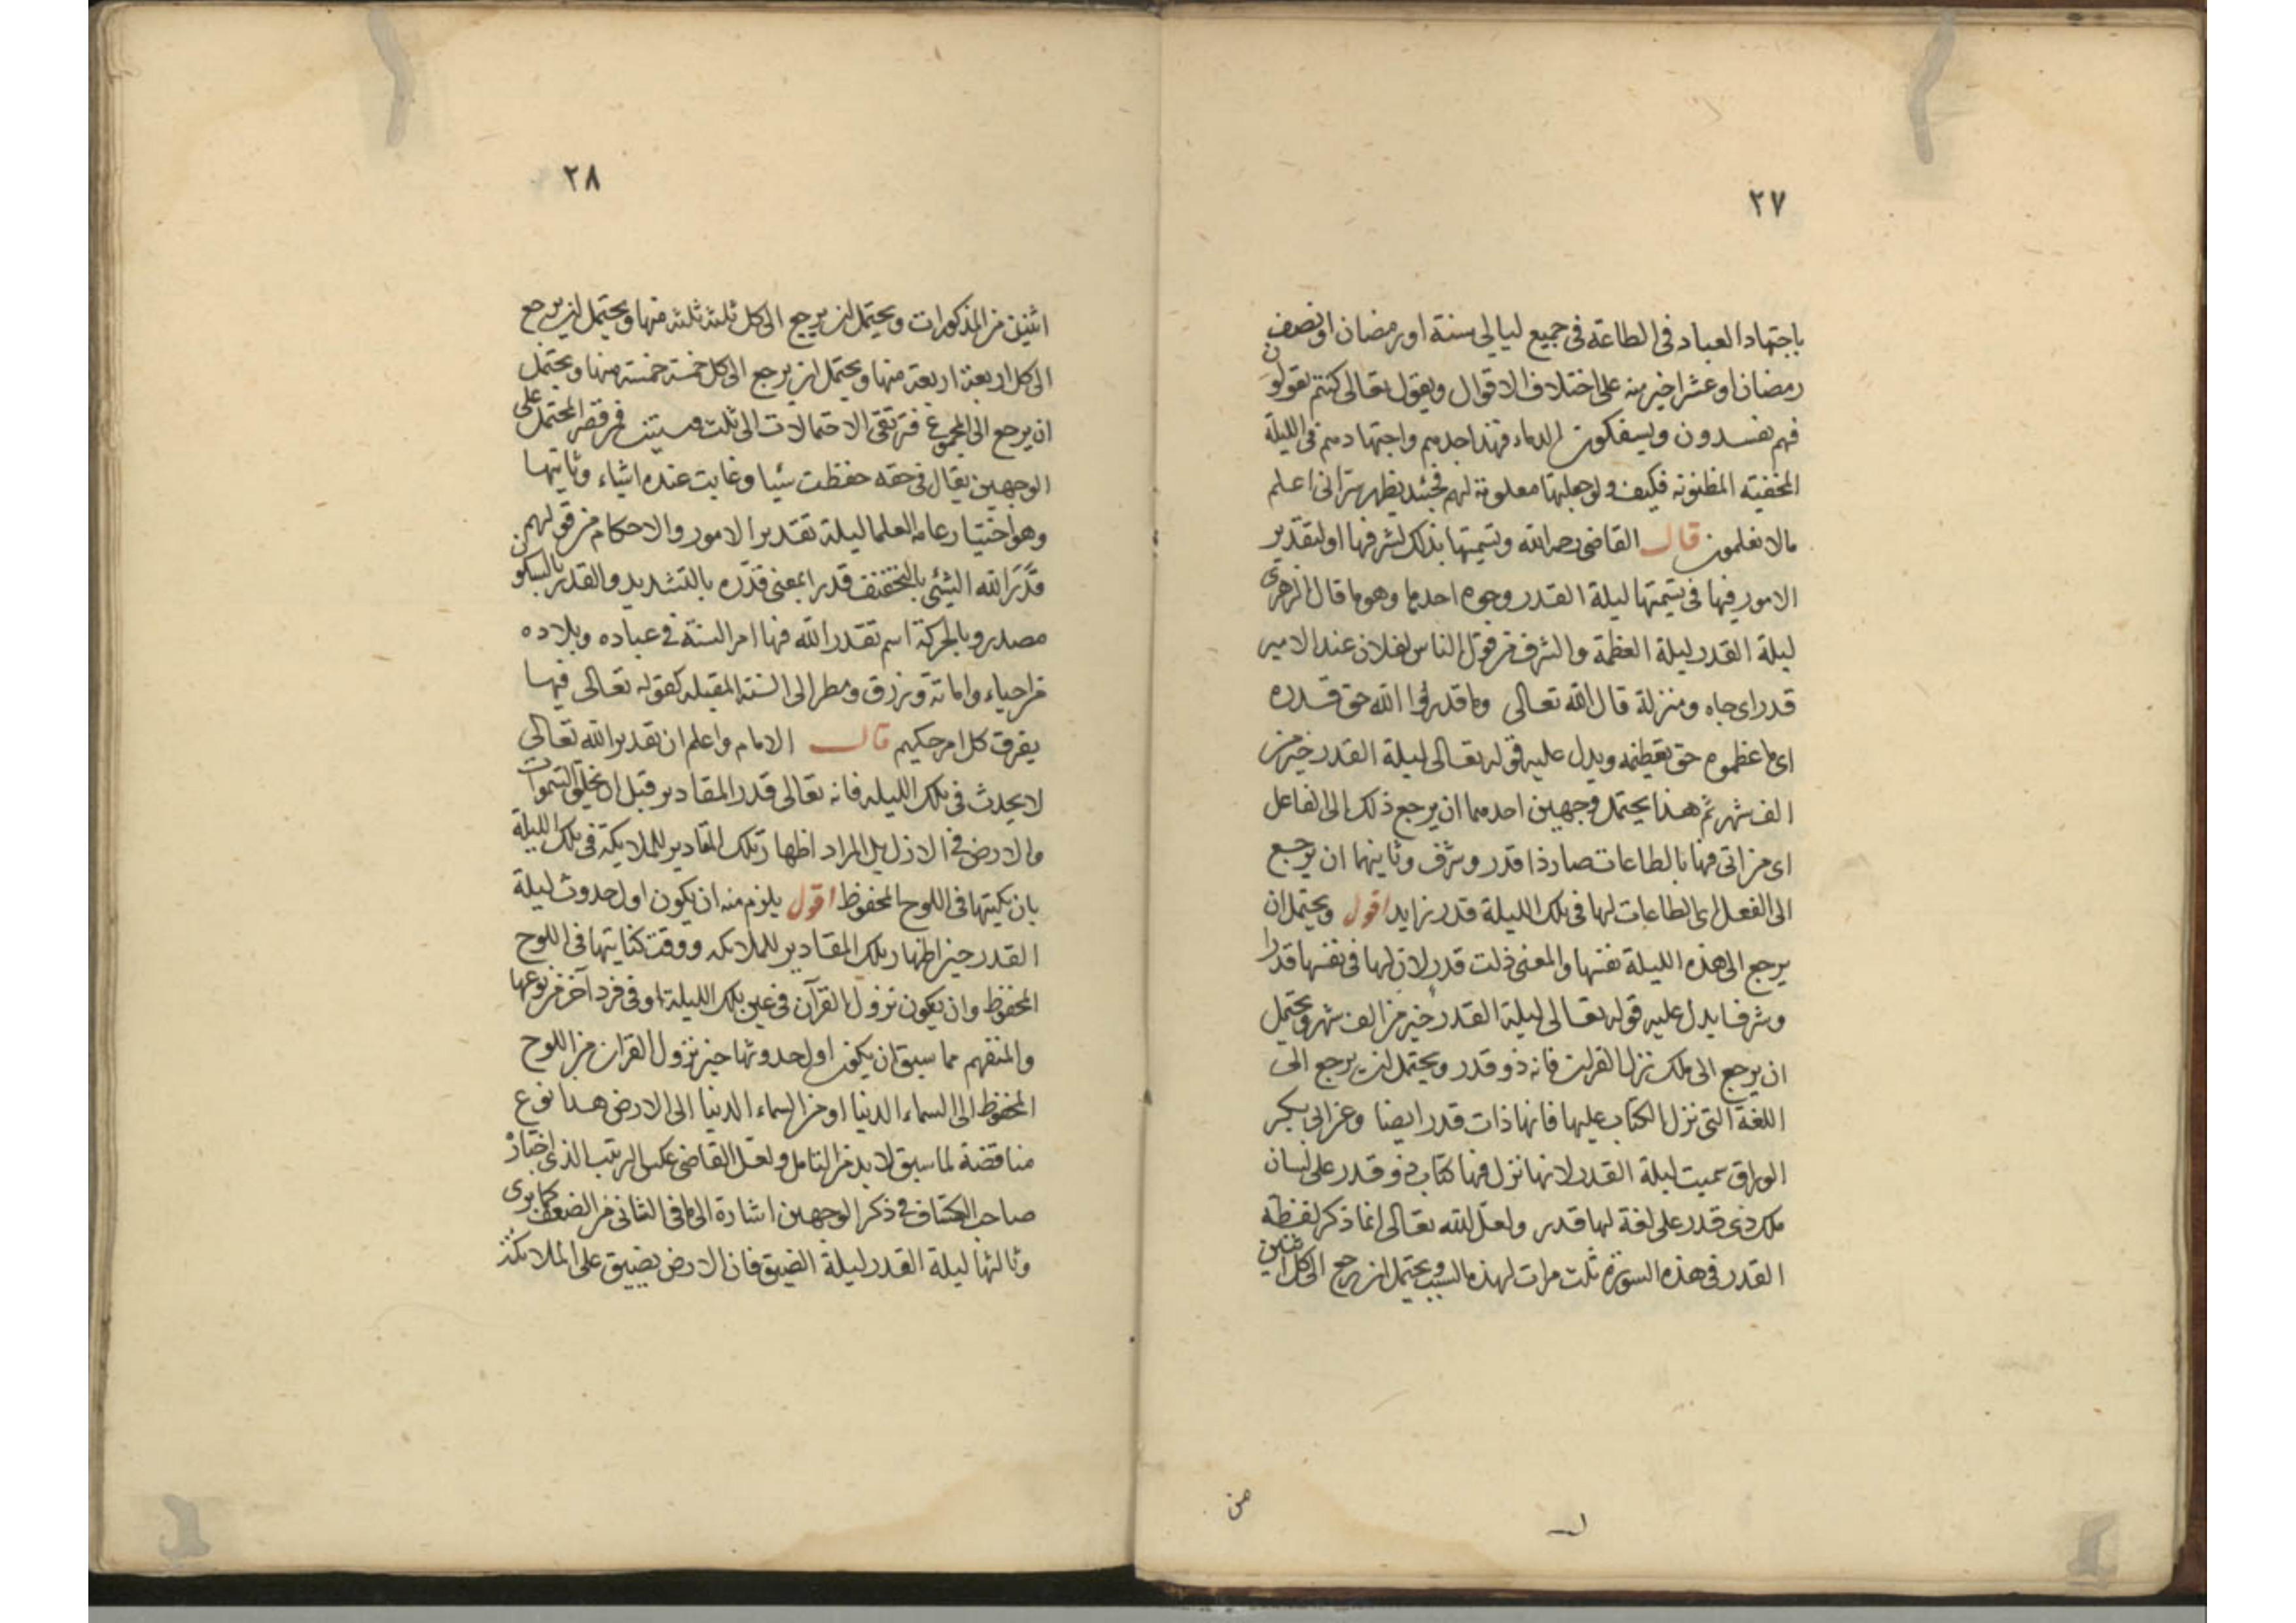 ٢٧
باجتهاد العباد فى الطاعة فى جميع ليالى سنة او رمضان او نصف
رمضان او عشر اخير منه على اختلاف الاقوال ويقول تعالى كنتم تقولون
فهم يفسدون ويسفكون الدماء فهذا جدهم واجتهادهم فى الليلة
المخفيته المظنونه فكيف ولو جعلتها معلومة لهم فحينئذ يظهر سر انى اعلم
مالا تعلمون قال القاضى رحمه الله وتسميتها بذلك لشرفها او لتقدير
الامور فيها فى تسميتها ليلة القدر وجوه احدها وهو ما قال الزهرى
ليلة القدر ليلة العظمة والشرف من قول الناس لفلان عند الامير
قدر اى جاه ومنزلة قال الله تعالى وما قدروا الله حق قدره
اى ما عظموه حق تعظيمه ويدل عليه قوله تعالى ليلة القدر خير من
الف شهر ثم هذا يحتمل وجهين احدهما ان يرجع ذلك الى الفاعل
اى من اتى فيها بالطاعات صار ذا قدر وشرف وثانيهما ان يرجع
الى الفعل اى الطاعات لها فى تلك الليلة قدر زايد اقول ويحتمل ان
يرجع الى هذه الليلة نفسها والمعنى ذلت قدر لان لها فى نفسها قدرا
وشرفا يدل عليه قوله تعالى ليلة القدر خير من الف شهر ويحتمل
ان يرجع الى ملك نزل القران فانه ذو قدر ويحتمل ان يرجع الى
اللغة التى نزل الكتاب عليها فانها ذات قدر ايضا وعن ابى بكر
الوراق سميت ليلة القدر لانها نزل فيها كتاب ذو قدر على لسان
ملك ذى قدر على لغة لها قدر ولعل الله تعالى انما ذكر لفظة
القدر فى هذه السورة ثلث مرات لهذه السبب ويحتمل ان يرجع الى كل اثنين
٢٨
اثنين من المذكورات ويحتمل ان يرجع الى كل ثلثه ثلثه منها ويحتمل ان يرجع
الى كل اربعة اربعة منها ويحتمل ان يرجع الى كل خمسة خمسة منها ويحتمل
ان يرجع الى المجموع فترتقى الاحتمالات الى ثلث وستين فمن قصر المحتمل على
الوجهين يقال فى حقه حفظت شيا وغابت عنده اشياء وثانيها
وهو اختيار عامه العلما ليلة تقدير الامور والاحكام من قولهم
قدر الله الشئ بالتخفيف قدرا بمعنى قدّره بالتشديد والقدر بالسكون
مصدر وبالحركة اسم تقدر الله فيها امر السنة فى عباده وبلاده
من احياء واماته ورزق ومطر الى السنة المقبله كقوله تعالى فيها
يفرق كل امر حكيم قال الامام واعلم ان تقدير الله تعالى
لا يحدث فى تلك الليله فانه تعالى قدر المقادير قبل ان يخلق السموات
والارض فى الازل بل المراد اظهار تلك المقادير للملايكة فى تلك الليلة
بان يكتبها فى اللوح المحفوظ اقول يلزم منه ان يكون اول حدوث ليلة
القدر حين اظهار تلك المقادير للملائكه ووقت كتابتها فى اللوح
المحفوظ وان يكون نزول القرآن فى عين تلك الليلة او فى فرد آخر من نوعها
والمتفهم مما سبق ان يكون اول حدوثها حين نزول القران من اللوح
المحفوظ الى السماء الدنيا او من السماء الدنيا الى الارض هذا نوع
مناقضة لما سبق لا بد من التامل ولعل القاضى عكس الرتيب الذى اختاره
صاحب الكشاف فى ذكر الوجهين اشارة الى ما فى الثانى من الضعف كما يرى
وثالثها ليلة القدر ليلة الضيق فان الارض يضيق على الملائكة